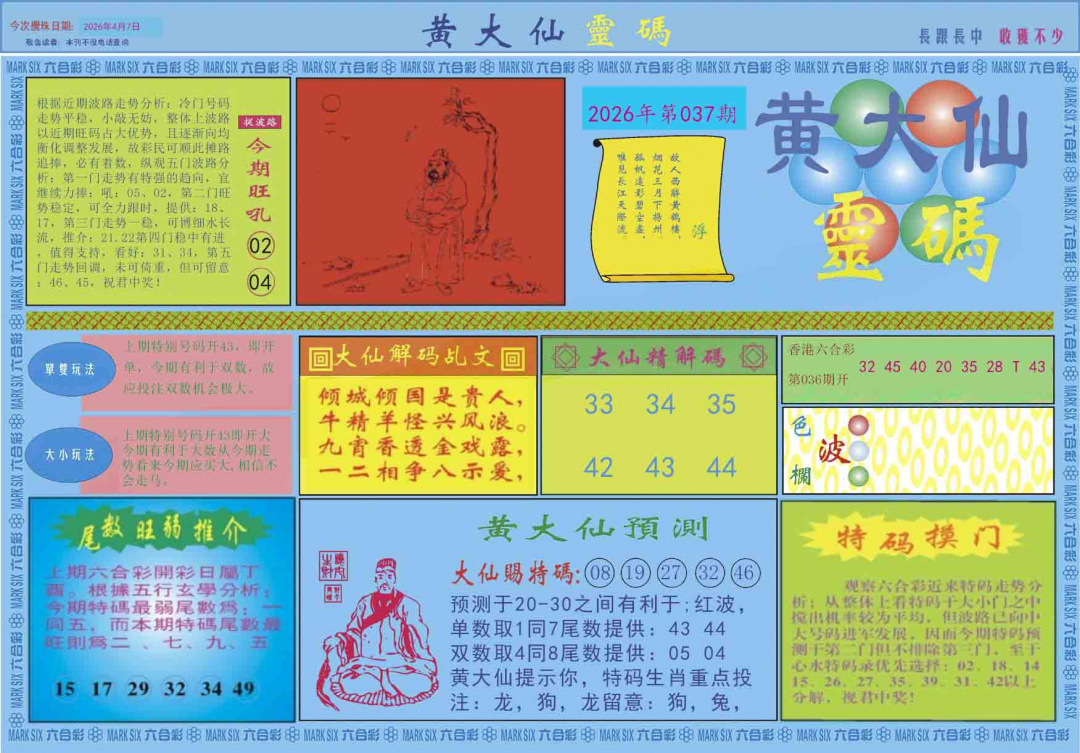 今次攪珠日期: 2026年4月7日
敬告读者: 本刊不设电话查询
黄大仙靈碼
長跟長中 收獲不少
MARK SIX 六合彩 MARK SIX 六合彩 MARK SIX 六合彩 MARK SIX 六合彩 MARK SIX 六合彩 MARK SIX 六合彩 MARK SIX 六合彩 MARK SIX 六合彩 MARK SIX 六合彩 MARK SIX 六合彩 MARK SIX 六合彩
根据近期波路走势分析: 冷门号码
走势平稳, 小敲无妨, 整体上波路
以近期旺码占大优势, 且逐渐向均
衡化调整发展, 故彩民可顺此摊路
追捧, 必有着数, 纵观五门波路分
析: 第一门走势有特强的趋向, 宜
继续力捧: 吼: 05、02, 第二门旺
势稳定, 可全力跟时, 提供: 18、
17, 第三门走势一稳, 可博细水长
流, 推介: 21.22第四门稳中有进
, 值得支持, 看好: 31、34, 第五
门走势回调, 未可倚重, 但可留意
: 46、45, 祝君中奖!
捉波路
今期旺吼
02
04
2026年第037期
故人西辭黄鶴樓,
烟花三月下揚州
孤帆遠影碧空盡
唯見長江天際流
浮
黄大仙
靈碼
單雙玩法
上期特别号码开43, 即开
单, 今期有利于双数, 故
应投注双数机会极大。
大小玩法
上期特别号码开43即开大
今期有利于大数从今期走
势看来今期应买大,相信不
会走马。
大仙解码乩文
倾城倾国是贵人,
牛精羊怪兴风浪。
九宵香透金戏露,
一二相争八示爱,
大仙精解碼
33 34 35
42 43 44
香港六合彩
第036期开
32 45 40 20 35 28 T 43
色波欄
尾数旺弱推介
上期六合彩開彩日屬丁
酉。根據五行玄學分析:
今期特碼最弱尾數爲: 一
同五, 而本期特碼尾數最
旺則爲二、七、九、五
15 17 29 32 34 49
黄大仙預測
大仙賜特碼: 08 19 27 32 46
预测于20-30之间有利于;红波,
单数取1同7尾数提供: 43 44
双数取4同8尾数提供: 05 04
黄大仙提示你, 特码生肖重点投
注: 龙, 狗, 龙留意: 狗, 兔,
特码摸门
观察六合彩近来特码走势分
析; 从整体上看特码于大小门之中
搅出机率较为平均, 但波路已向中
大号码进军发展, 因而今期特码预
测于第二门但不排除第三门, 至于
心水特码录优先选择: 02、18、14
15、26、27、35、39、31、42以上
分解, 祝君中奖!
MARK SIX 六合彩 MARK SIX 六合彩 MARK SIX 六合彩 MARK SIX 六合彩 MARK SIX 六合彩 MARK SIX 六合彩 MARK SIX 六合彩 MARK SIX 六合彩 MARK SIX 六合彩 MARK SIX 六合彩 MARK SIX 六合彩